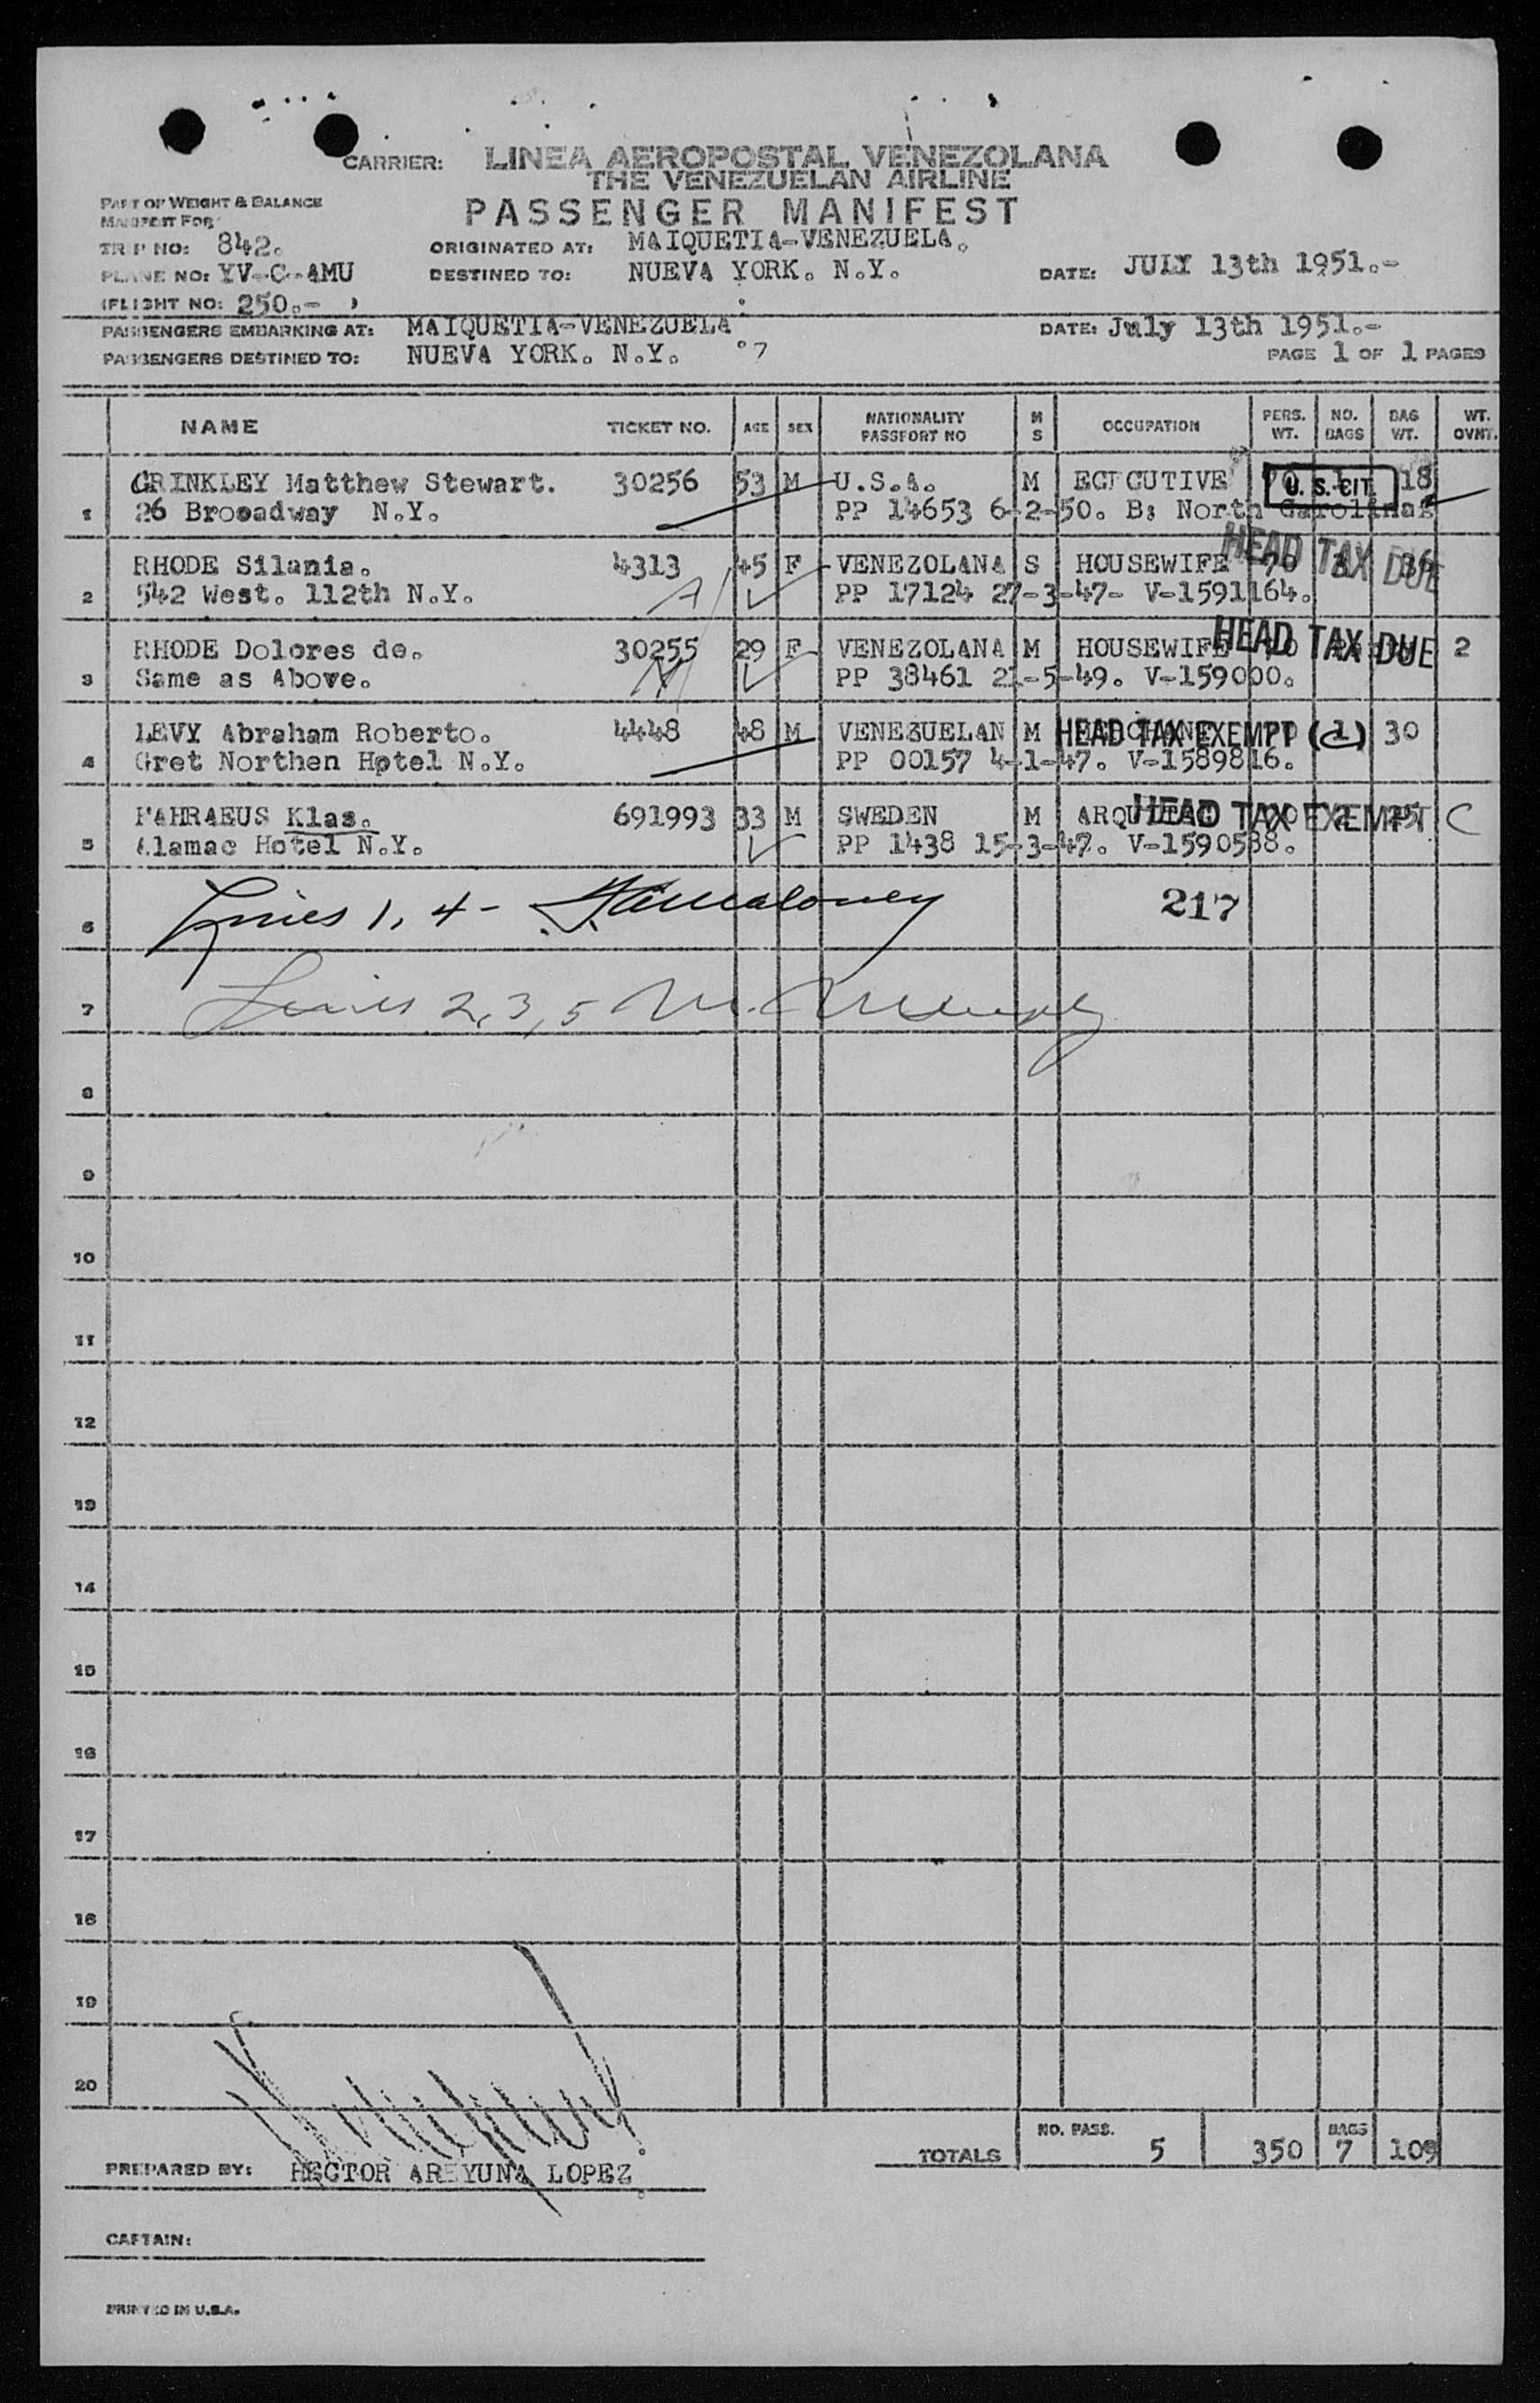 CARRIER: LINEA AEROPOSTAL VENEZOLANA
THE VENEZUELAN AIRLINE
PASSENGER MANIFEST
PART OF WEIGHT & BALANCE
MANIFEST FOR
TRIP NO: 842.
PLANE NO: YV-C-AMU
(FLIGHT NO: 250.- )
ORIGINATED AT: MAIQUETIA-VENEZUELA.
DESTINED TO: NUEVA YORK. N.Y.
DATE: JULY 13th 1951.-
PASSENGERS EMBARKING AT: MAIQUETIA-VENEZUELA
DATE: July 13th 1951.-
PASSENGERS DESTINED TO: NUEVA YORK. N.Y.
PAGE 1 OF 1 PAGES
NAME TICKET NO. AGE SEX NATIONALITY PASSPORT NO M S OCCUPATION PERS. WT. NO. BAGS BAG WT. WT. OVNT.
1 GRINKLEY Matthew Stewart. 30256 53 M U.S.A. M ECECUTIVE 70 1 18
U. S. CIT.
26 Brooadway N.Y. PP 14653 6-2-50. B; North Carolina
2 RHODE Silania. 4313 45 F VENEZOLANA S HOUSEWIFE 70
HEAD TAX DUE
542 West. 112th N.Y. A PP 17124 27-3-47- V-1591164.
3 RHODE Dolores de. 30255 29 F VENEZOLANA M HOUSEWIFE 2
HEAD TAX DUE
Same as Above. PP 38461 21-5-49. V-159000.
4 LEVY Abraham Roberto. 4448 48 M VENEZUELAN M (1) 30
HEAD TAX EXEMPT
Gret Northen Hotel N.Y. PP 00157 4-1-47. V-1589816.
5 FAHRAEUS Klas. 691993 33 M SWEDEN M 25 C
HEAD TAX EXEMPT
Alamac Hotel N.Y. PP 1438 15-3-47. V-1590588.
6 Lines 1, 4 - Maloney 217
7 Lines 2, 3, 5 M.
8
9
10
11
12
13
14
15
16
17
18
19
20
TOTALS NO. PASS. 5 350 BAGS 7 109
PREPARED BY: HECTOR AREYUNA LOPEZ
CAPTAIN:
PRINTED IN U.S.A.